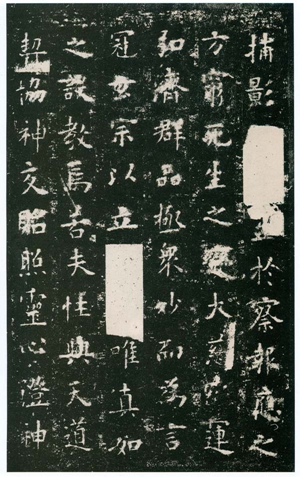 捕影於察報應之
方窮死生之變大運
弘濟群品極衆妙而為言
冠玄宗以立唯真如
之設教焉若夫性與天道
契協神交照靈心澄神